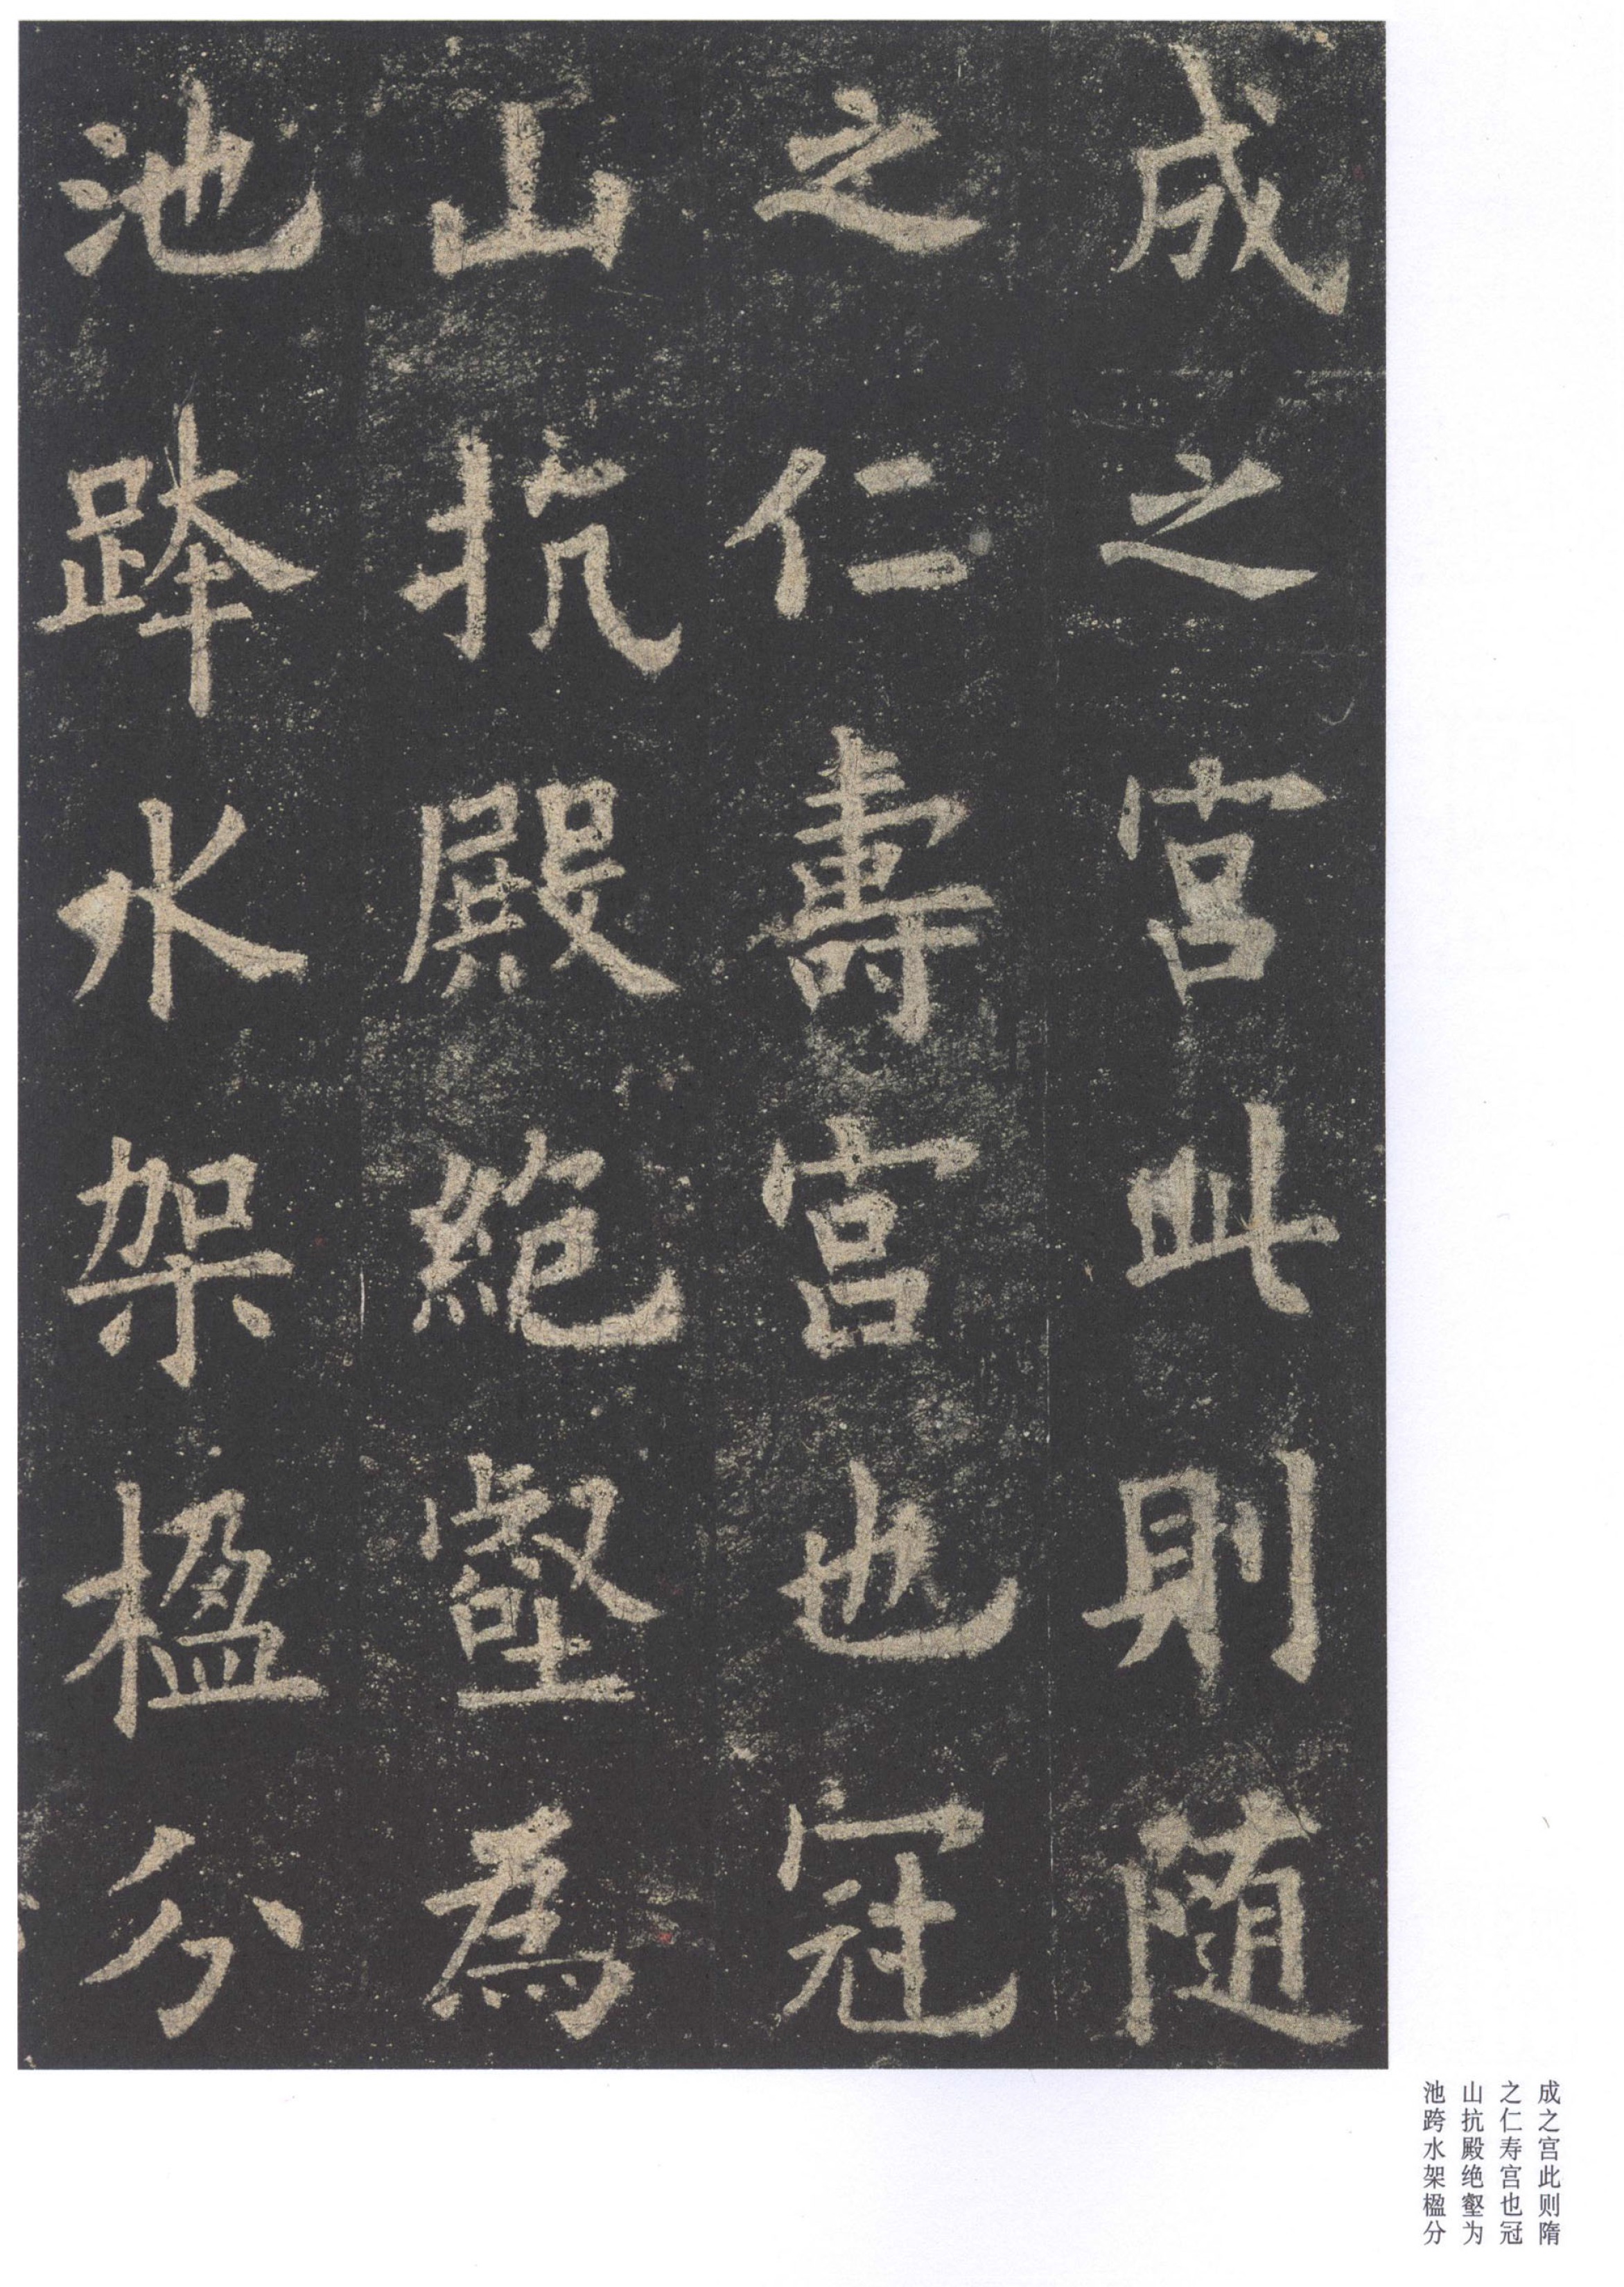 成之宫此則随
之仁壽宫也冠
山抗殿絶壑為
池跨水架楹分
成之宫此则隋
之仁寿宫也冠
山抗殿绝壑为
池跨水架楹分